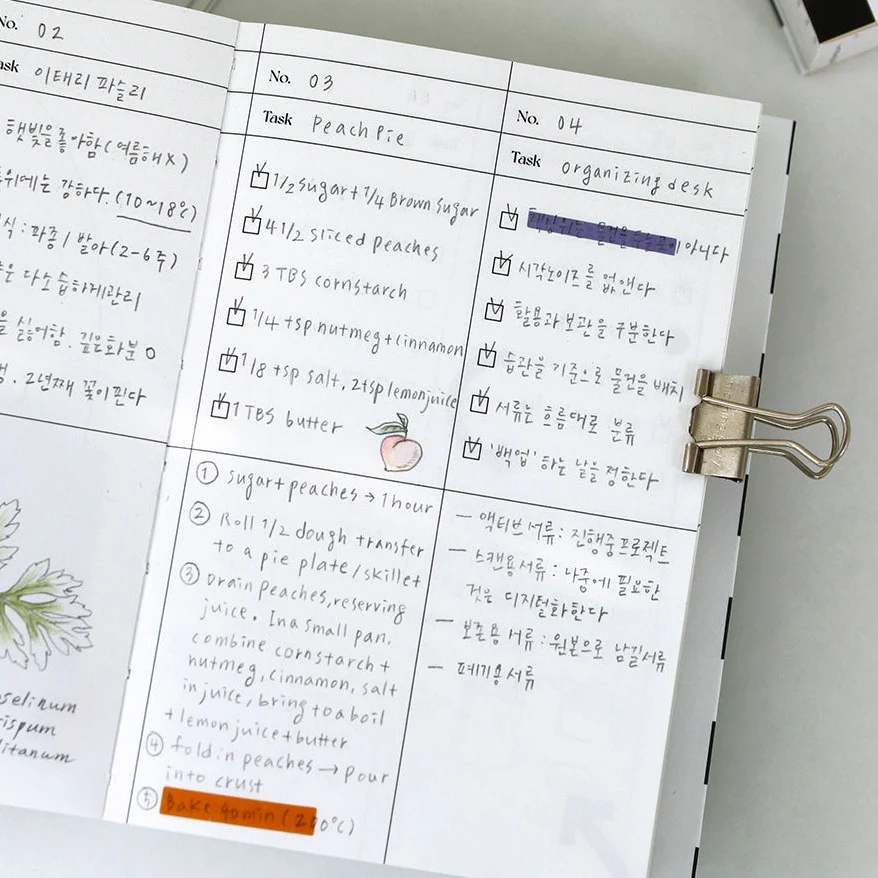 No. 02
Task 이태리 파슬리
햇빛을 좋아함 (여름해 X)
위에는 강하다. (10~18℃)
식 : 파종 / 발아 (2-6주)
다소 습하게 관리
싫어함. 깊은화분 O
2년째 꽃이핀다
selinum
rispum
litanum
No. 03
Task Peach Pie
1/2 sugar + 1/4 Brown sugar
4 1/2 sliced peaches
3 TBS cornstarch
1/4 tsp nutmeg + cinnamon
1/8 tsp salt, 2tsp lemon juice
1 TBS butter
① sugar + peaches → 1 hour
② Roll 1/2 dough transfer
to a pie plate/skillet
③ Drain peaches, reserving
juice. In a small pan.
combine cornstarch +
nutmeg, cinnamon, salt
in juice, bring to a boil
+ lemon juice + butter
④ fold in peaches → pour
into crust
⑤ Bake 40min (200℃)
No. 04
Task organizing desk
물건을 아니다
시각노이즈를 없앤다
활용과 보관을 구분한다
습관을 기준으로 물건을 배치
서류는 흐름대로 분류
'백업' 하는 날을 정한다
- 액티브 서류 : 진행중 프로젝트
- 스캔용 서류 : 나중에 필요한
것은 디지털화한다
- 보존용 서류 : 원본으로 남길서류
- 폐기용 서류